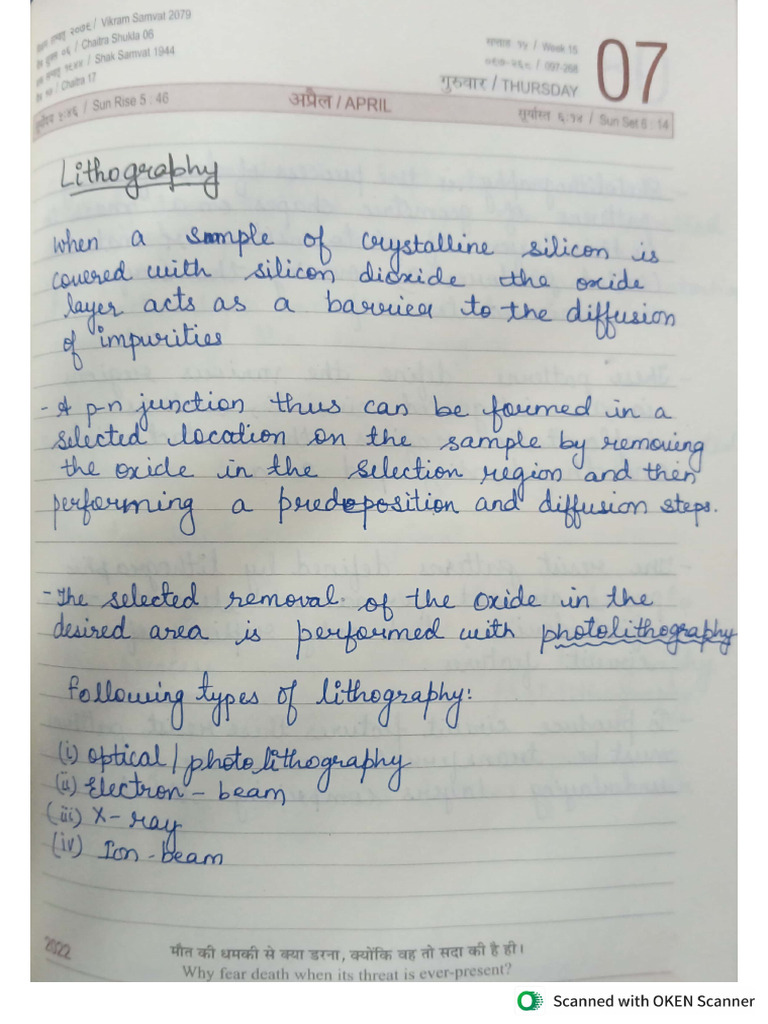 २०७९ / Vikram Samvat 2079
०६ / Chaitra Shukla 06
१९४४ / Shak Samvat 1944
Chaitra 17
सूर्योदय ५:४६ / Sun Rise 5 : 46
अप्रैल / APRIL
सप्ताह १५ / Week 15
०९७-२६८ / 097-268
गुरुवार / THURSDAY
07
सूर्यास्त ६:१४ / Sun Set 6 : 14
Lithography
When a sample of crystalline silicon is
covered with silicon dioxide the oxide
layer acts as a barrier to the diffusion
of impurities
- A p-n junction thus can be formed in a
selected location on the sample by removing
the oxide in the selection region and then
performing a predeposition and diffusion steps.
- The selected removal of the oxide in the
desired area is performed with photolithography
Following types of lithography:
(i) optical / photo lithography
(ii) Electron - beam
(iii) X - ray
(iv) Ion - beam
2022
मौत की धमकी से क्या डरना, क्योंकि वह तो सदा की है ही।
Why fear death when its threat is ever-present?
Scanned with OKEN Scanner